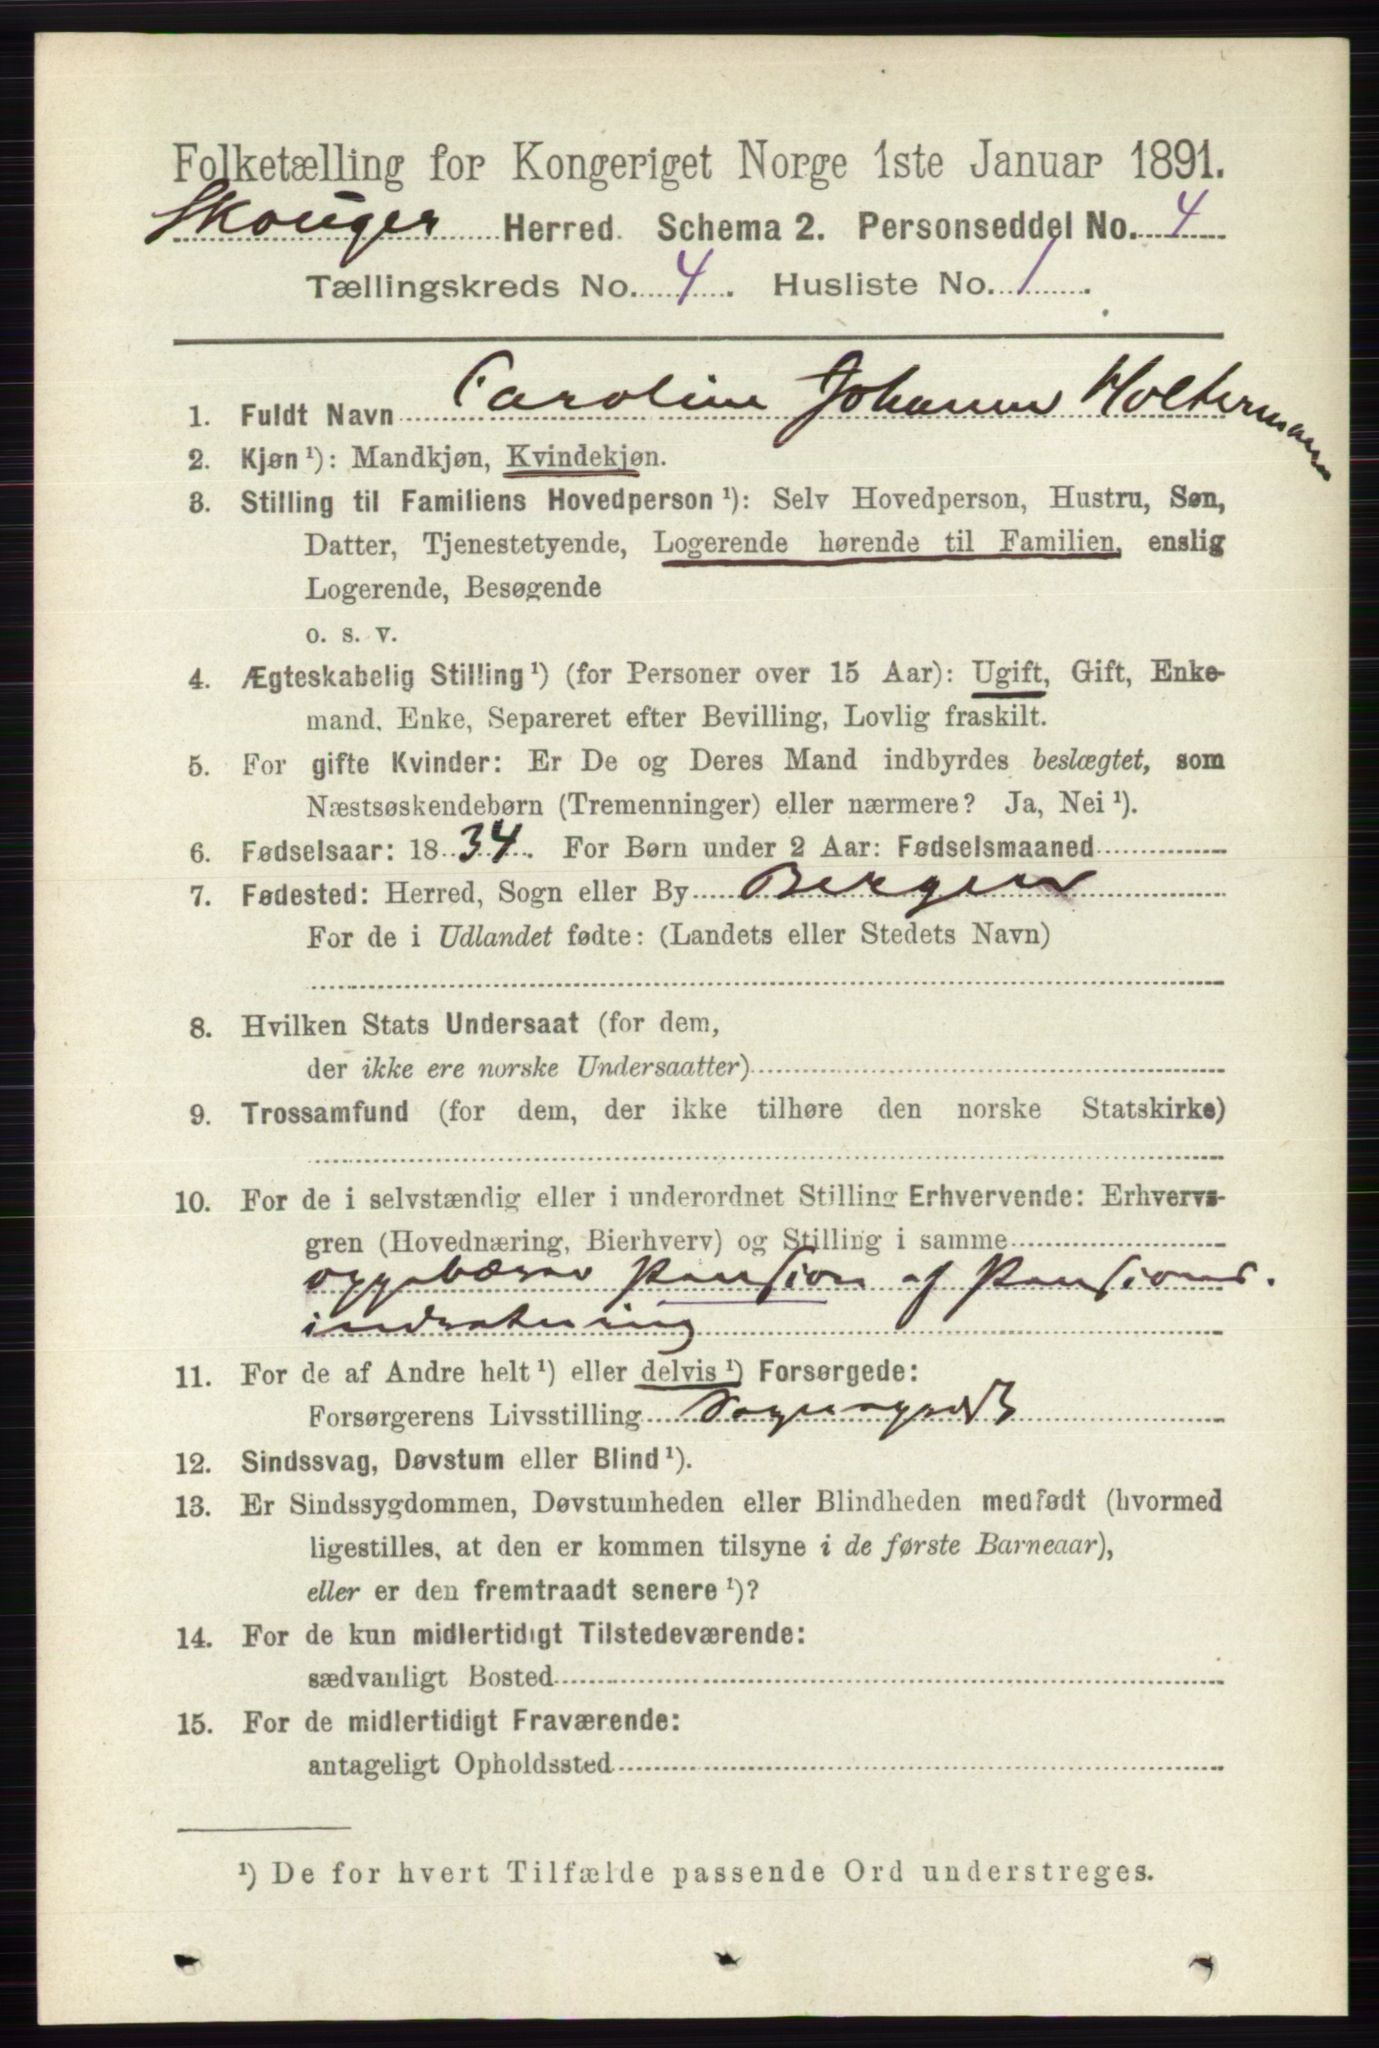 Folketælling for Kongeriget Norge 1ste Januar 1891.
Skouger Herred. Schema 2. Personseddel No. 4
Tællingskreds No. 4. Husliste No. 1.
1. Fuldt Navn Caroline Johanne Holtermann
2. Kjøn ¹): Mandkjøn, Kvindekjøn.
3. Stilling til Familiens Hovedperson ¹): Selv Hovedperson, Hustru, Søn,
Datter, Tjenestetyende, Logerende hørende til Familien, enslig
Logerende, Besøgende
o. s. v.
4. Ægteskabelig Stilling ¹) (for Personer over 15 Aar): Ugift, Gift, Enke-
mand, Enke, Separeret efter Bevilling, Lovlig fraskilt.
5. For gifte Kvinder: Er De og Deres Mand indbyrdes beslægtet, som
Næstsøskendebørn (Tremenninger) eller nærmere? Ja, Nei ¹).
6. Fødselsaar: 1834. For Børn under 2 Aar: Fødselsmaaned
7. Fødested: Herred, Sogn eller By Bergen
For de i Udlandet fødte: (Landets eller Stedets Navn)
8. Hvilken Stats Undersaat (for dem,
der ikke ere norske Undersaatter)
9. Trossamfund (for dem, der ikke tilhøre den norske Statskirke)
10. For de i selvstændig eller i underordnet Stilling Erhvervende: Erhvervs-
gren (Hovednæring, Bierhverv) og Stilling i samme
oppebærer Pension af Pensions.
indretning
11. For de af Andre helt ¹) eller delvis ¹) Forsørgede:
Forsørgerens Livsstilling Sogneprest
12. Sindssvag, Døvstum eller Blind ¹).
13. Er Sindssygdommen, Døvstumheden eller Blindheden medfødt (hvormed
ligestilles, at den er kommen tilsyne i de første Barneaar),
eller er den fremtraadt senere ¹)?
14. For de kun midlertidigt Tilstedeværende:
sædvanligt Bosted
15. For de midlertidigt Fraværende:
antageligt Opholdssted
¹) De for hvert Tilfælde passende Ord understreges.